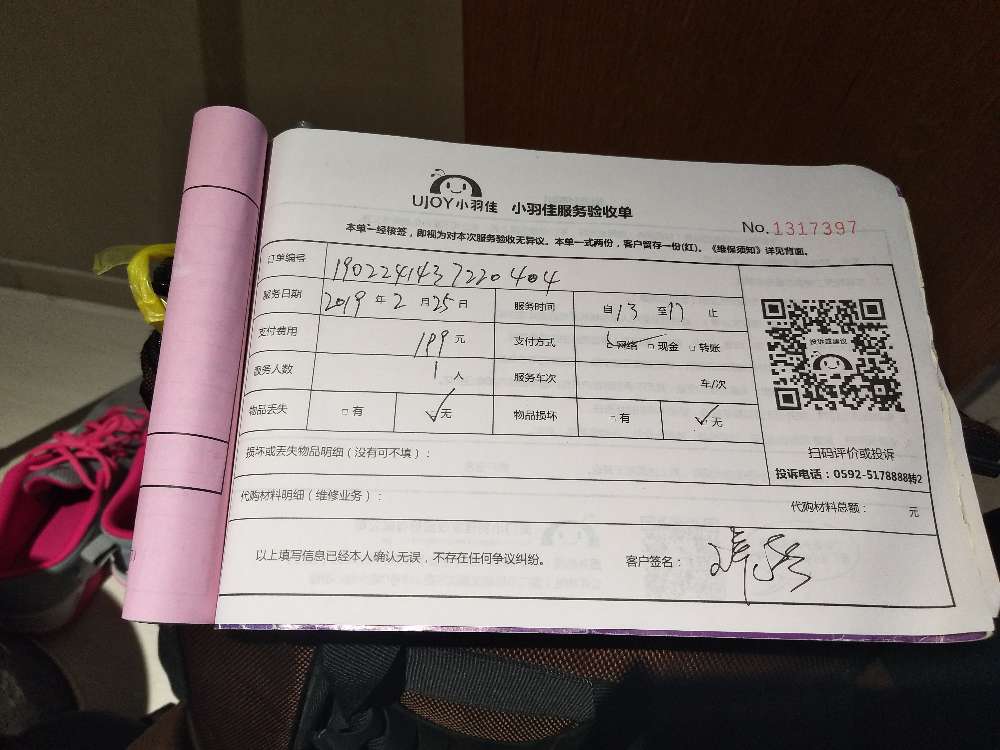 UJOY小羽佳 小羽佳服务验收单
No.1317397
本单一经核签，即视为对本次服务验收无异议。本单一式两份，客户留存一份(红)。《维保须知》详见背面。
订单编号 1902241437220404
服务日期 2019 年 2 月 25 日 服务时间 自 13 至 17 止
支付费用 199 元 支付方式 网络 现金 转账
服务人数 1 人 服务车次 车/次
物品丢失 有 无 物品损坏 有 无
投诉或建议
扫码评价或投诉
投诉电话：0592-5178888转2
损坏或丢失物品明细（没有可不填）：
代购材料明细（维修业务）： 代购材料总额： 元
以上填写信息已经本人确认无误，不存在任何争议纠纷。 客户签名：